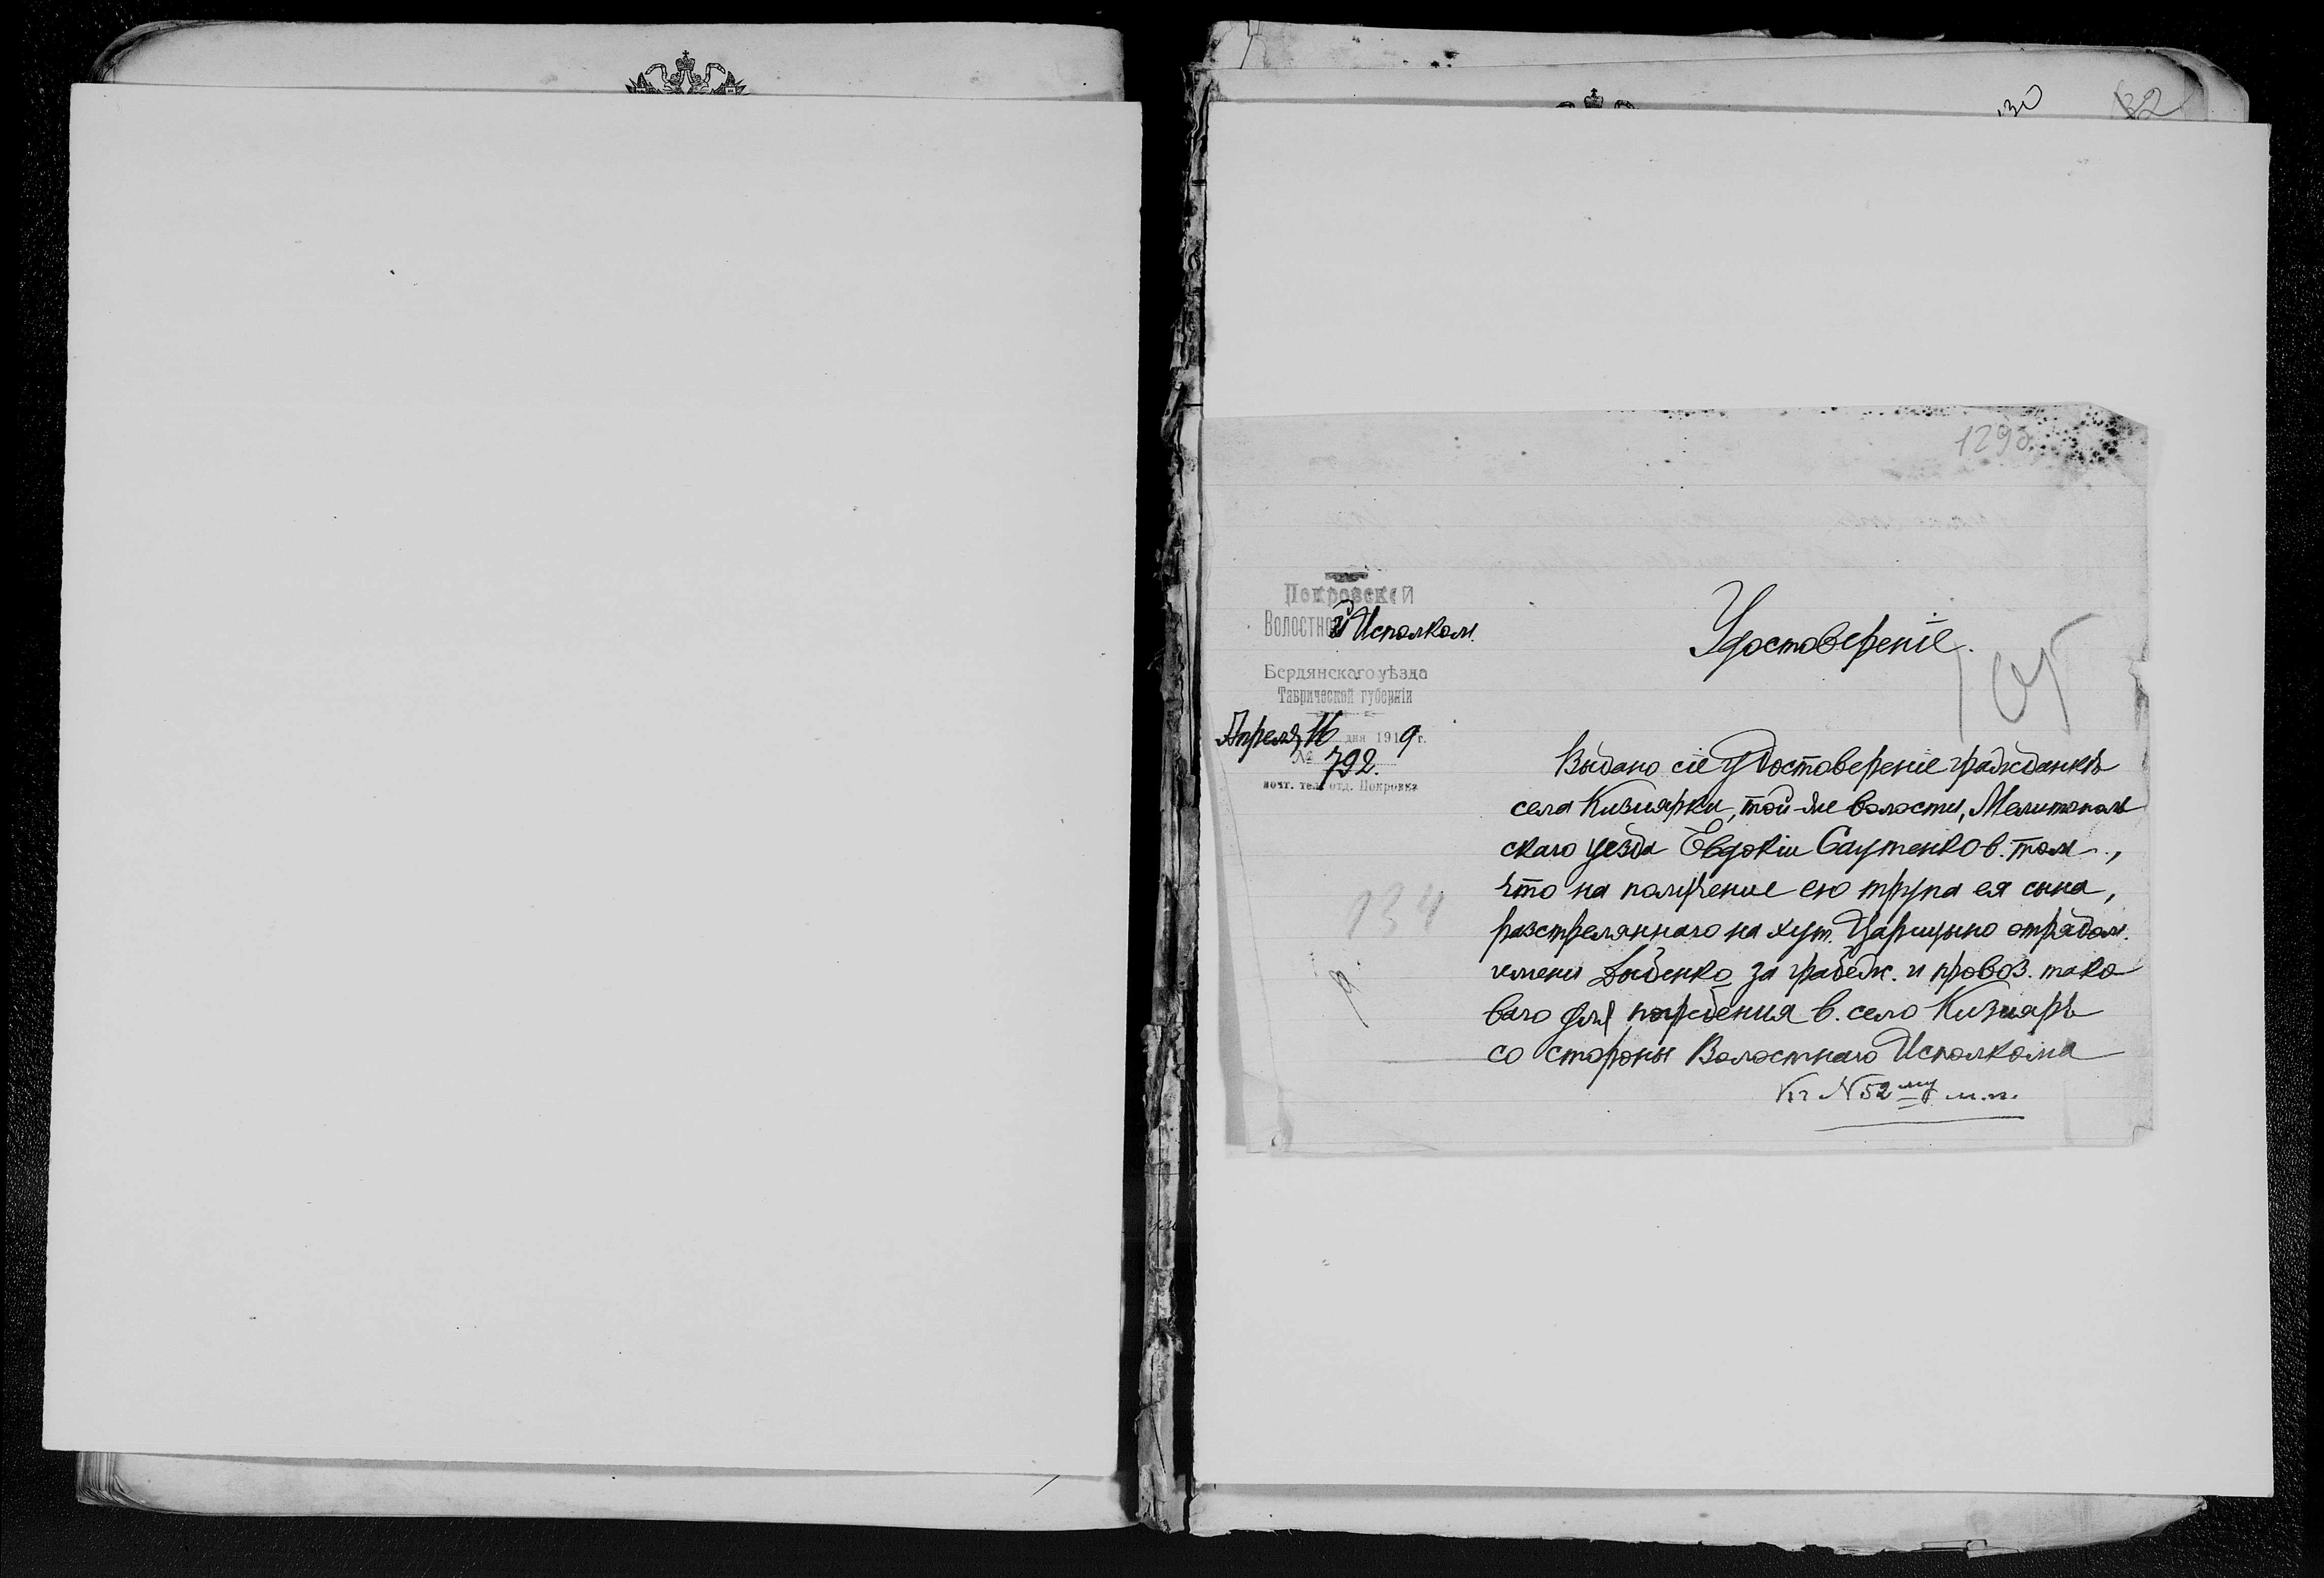 30
82
129 об.
Покровскій
Волостной Исполком.
Бердянскаго уѣзда
Таврической губерніи
Апреля 16 дня 1919 г.
№ 792.
почт. тел. отд. Покровка
Удостоверение.
Выдано сіе Удостоверение гражданкѣ
села Кизиярки, той-же волости, Мелитополь
скаго уезда Евдокіи Саутенко в. том.,
что на получение ею трупа ея сына,
разстреляннаго на хут. Царицыно отрядом.
имени Дыбенко за грабеж. и провоз. тако
ваго для погрбения в. село Кизиярь
со стороны Волостнаго Исполкома
134
Къ № 52 му м.п.